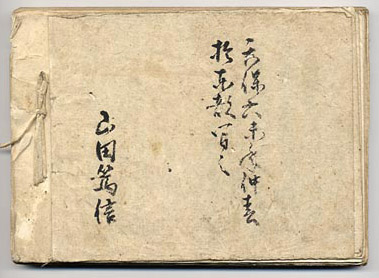 天保六未年仲春
於東都寫之
山田篤信